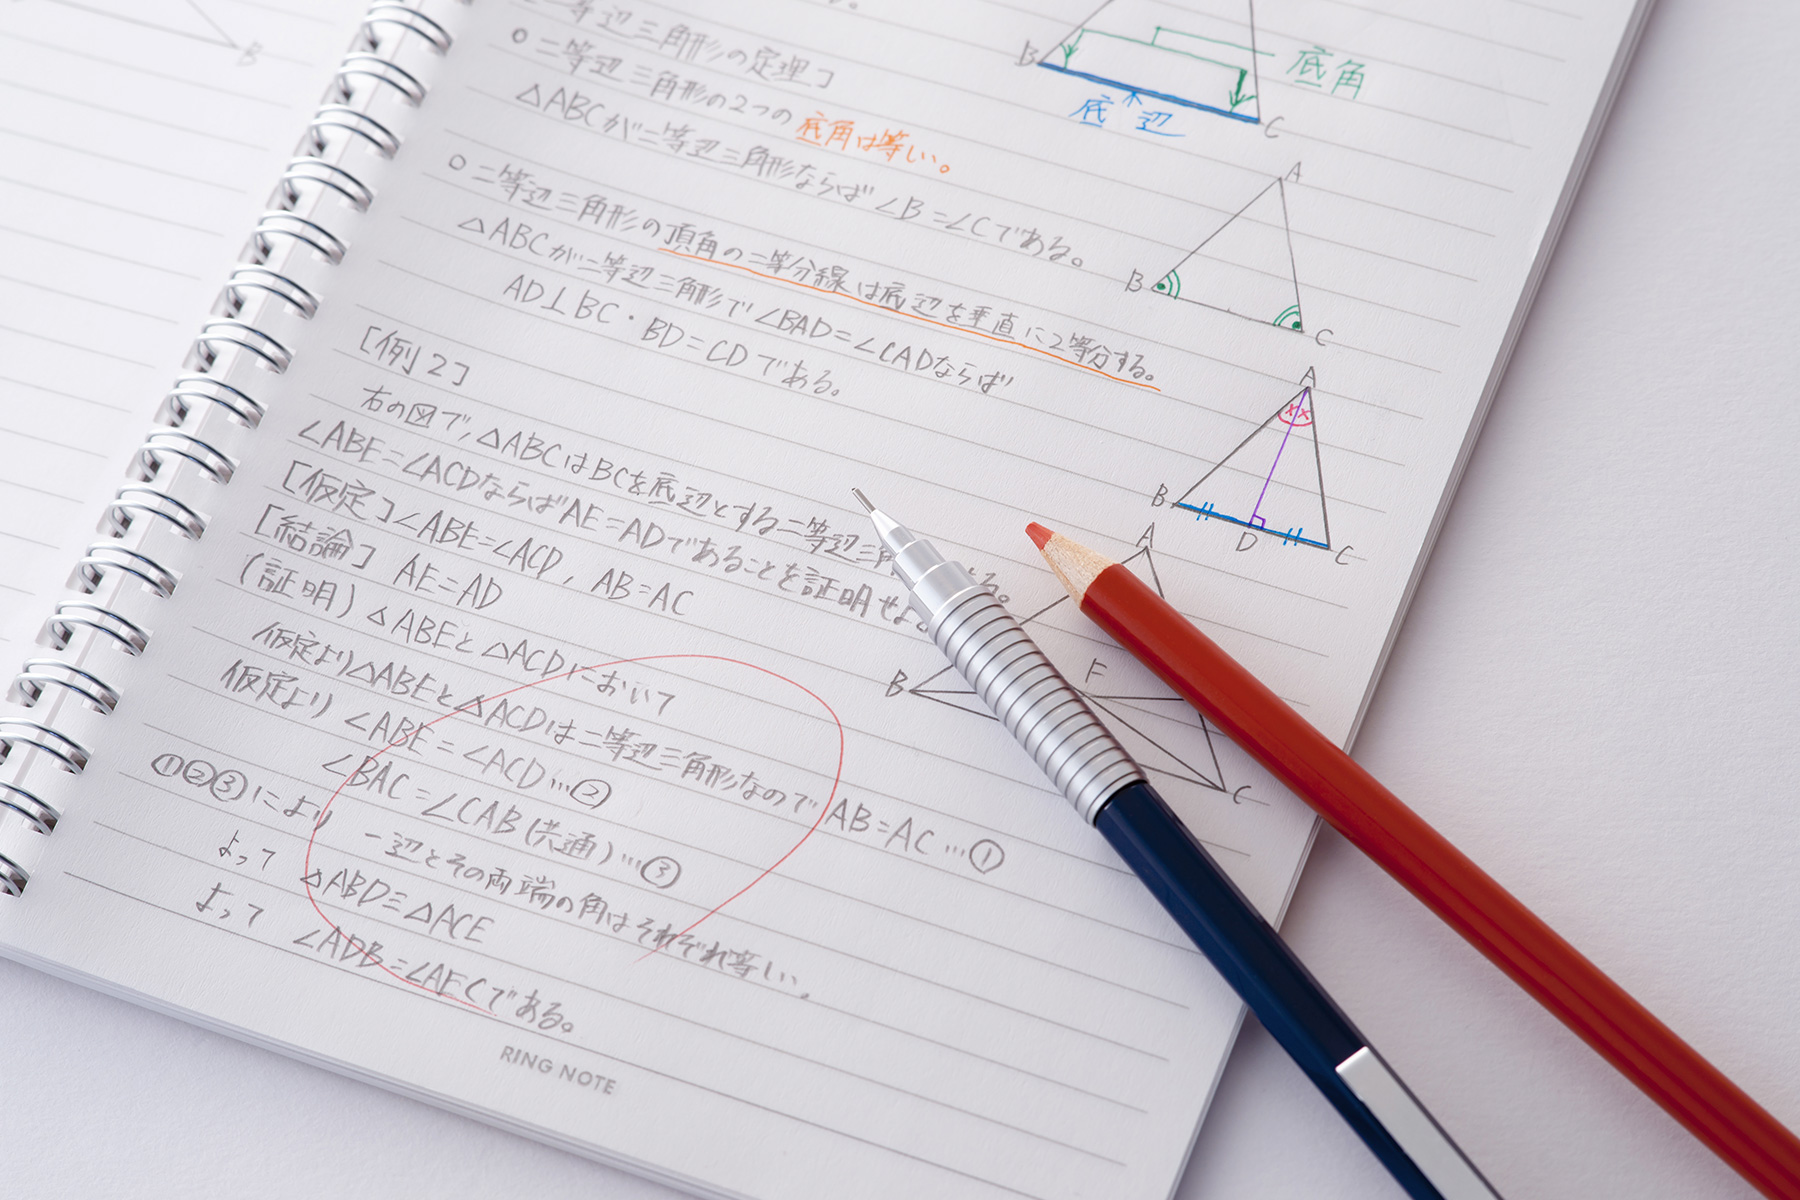 二等辺三角形の定理]
○ 二等辺三角形の2つの底角は等しい。
△ABCが二等辺三角形ならば∠B=∠Cである。
○ 二等辺三角形の頂角の二等分線は底辺を垂直に2等分する。
△ABCが二等辺三角形で∠BAD=∠CADならば
AD⊥BC・BD=CDである。
[例2]
右の図で、△ABCはBCを底辺とする二等辺三角 る。
∠ABE=∠ACDならばAE=ADであることを証明せよ。
[仮定]∠ABE=∠ACD, AB=AC
[結論] AE=AD
(証明) △ABEと△ACDにおいて
仮定より△ABEと△ACDは二等辺三角形なので AB=AC…①
仮定より ∠ABE=∠ACD…②
∠BAC=∠CAB(共通)…③
①②③により 一辺とその両端の角はそれぞれ等しい。
よって △ABD≡△ACE
よって ∠ADB=∠AECである。
RING NOTE
B
底角
底辺
B
C
A
B
C
A
B
D
C
A
B
F
C